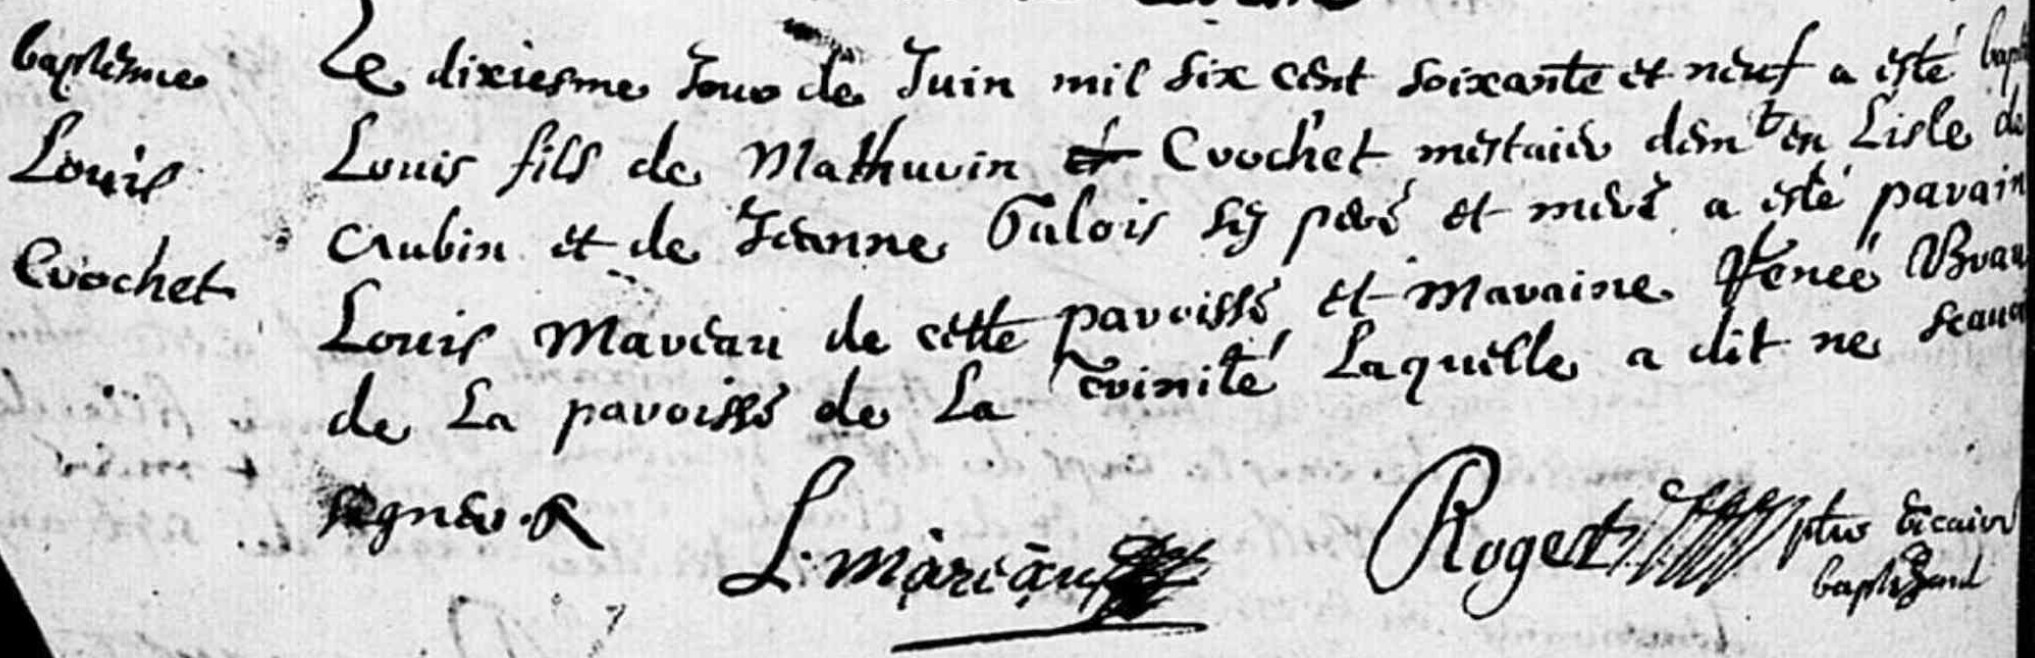 baptesme
Louis
Crochet
Le dixiesme Jour de Juin mil six cent soixante et neuf a esté bapt
Louis fils de Mathurin Crochet mestaier demt en Lisle de
Crubin et de Jeanne Galois sy peré et meré a esté parain
Louis Mareau de cette paroissé et Maraine Renée Brau
de La paroissé de La trinité Laquelle a dit ne scauo
signer. R
L. mareau
Rogert ptre vicaire
baptizant